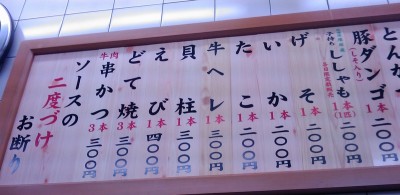 とんか
豚ダンゴ
(しそ入り)
1本
二〇〇円
子持ち
ししゃも
1本
(1匹)
二〇〇円
げそ
1本
二〇〇円
いか
1本
二〇〇円
たこ
1本
二〇〇円
牛ヘレ
1本
三〇〇円
貝柱
1本
三〇〇円
えび
1本
四〇〇円
どて焼
3本
三〇〇円
牛肉
串かつ
3本
三〇〇円
ソースの
二度づけ
お断り